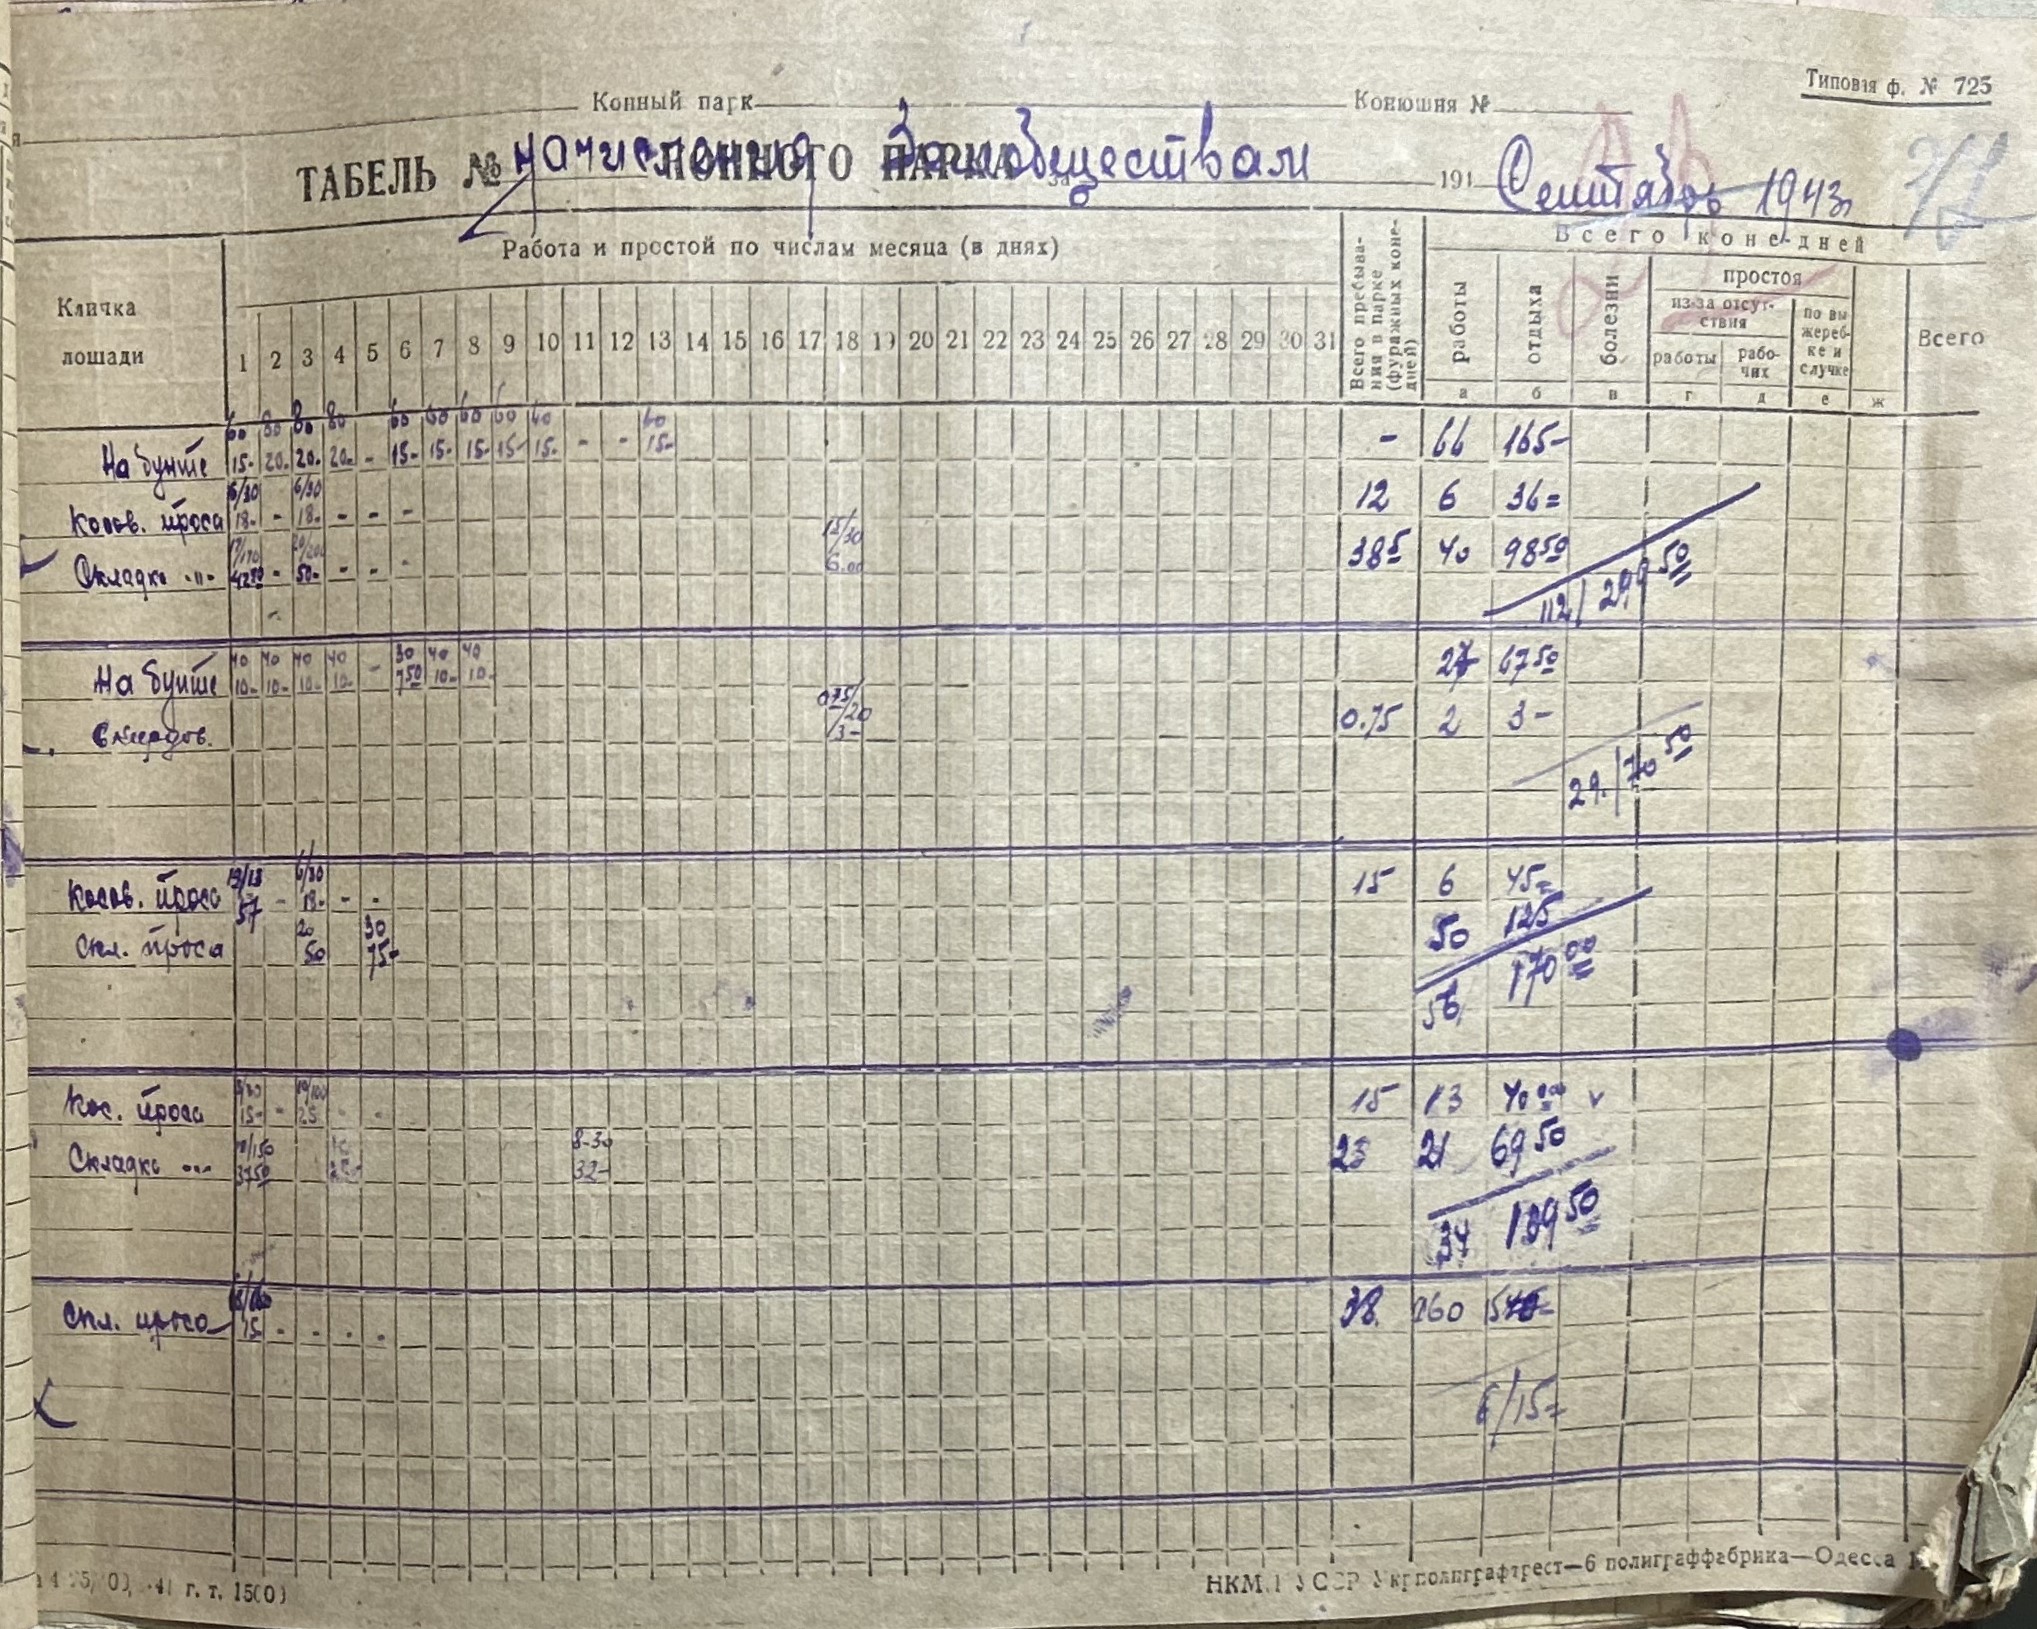 Типовая ф. № 725
Конный парк Конюшня №
ТАБЕЛЬ № КОННОГО ПАРКА за 194
Начисления Замобществам Сентябрь 1943г
Кличка лошади
Работа и простой по числам месяца (в днях)
1 2 3 4 5 6 7 8 9 10 11 12 13 14 15 16 17 18 19 20 21 22 23 24 25 26 27 28 29 30 31
Всего пребыва-
ния в парке
(фуражных коне-
дней)
Всего коне-дней
работы отдыха болезни
простоя
из-за отсут-
ствия
работы рабо-
чих
по вы
жереб-
ке и
случке
Всего
а б в г д е ж
60 80 80 80 60 60 60 60 60 60
На бунте 15- 20- 20- 20- - 15- 15- 15- 15- 15- - - 15- - 66 165-
6/30 6/30
Косов. проса 18- - 18- - - - 12 6 36=
17/170 20/200 15/30
Складке -"- 4250 - 50- - - - 6.00 385 40 98 50
112/299 50
40 40 40 40 30 40 40
На бунте 10- 10- 10- 10- - 7 50 10- 10- 27 67 50
0 75/20
Скирдов. 3- 0.75 2 3-
29./70 50
6/30
Косов. проса 57 - 18- - - 15 6 45=
20 30
Скл. проса 50 75- 50 125
56 170 00
10/100
Кос. проса 15- - 25 - - 15 13 40 00 v
8-30
Складке -"- 37 50 32- 23 21 69 50
34 109 50
Скл. проса 15 - - - - 38.
6/15=
г. т. 15(0)
НКМ.П УССР Укрполиграфтрест—6 полиграффабрика—Одесса